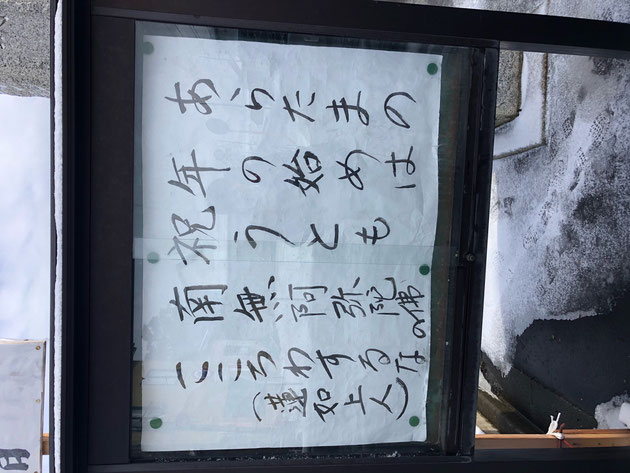 あらたまの
年の始めは
祝うとも
南無阿弥陀佛の
こころわするな
(蓮如上人)